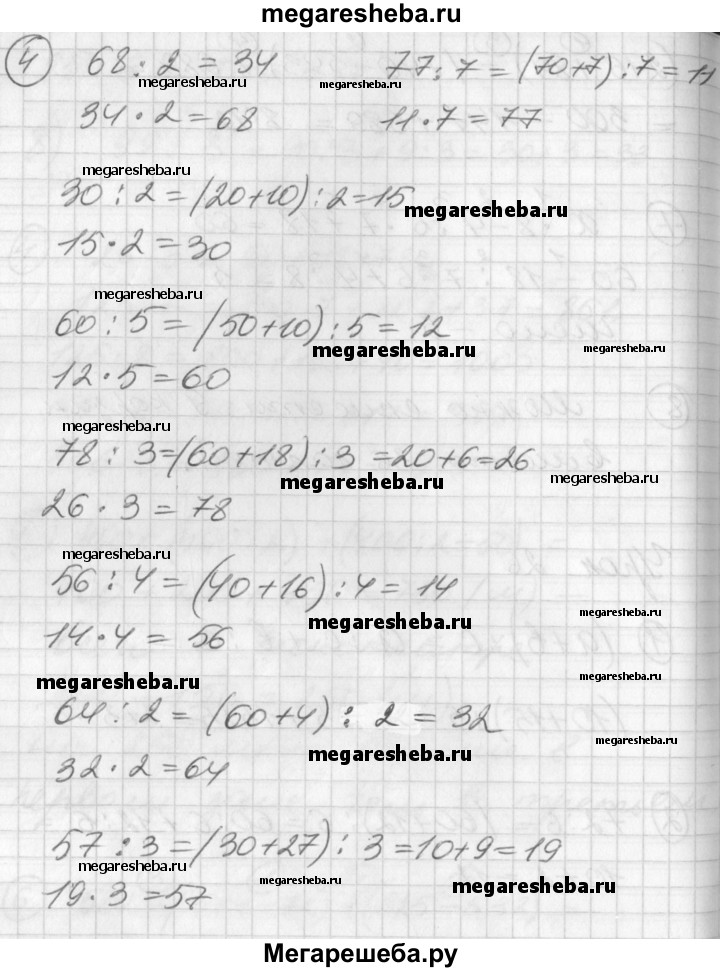 megaresheba.ru
4 68 : 2 = 34 77 : 7 = (70+7) : 7 = 11
megaresheba.ru megaresheba.ru
34 · 2 = 68 11 · 7 = 77
megaresheba.ru
30 : 2 = (20+10) : 2 = 15
megaresheba.ru
15 · 2 = 30
megaresheba.ru
60 : 5 = (50+10) : 5 = 12
megaresheba.ru megaresheba.ru
12 · 5 = 60
megaresheba.ru
78 : 3 = (60+18) : 3 = 20+6 = 26
megaresheba.ru megaresheba.ru
26 · 3 = 78
megaresheba.ru
56 : 4 = (40+16) : 4 = 14
megaresheba.ru megaresheba.ru
14 · 4 = 56
megaresheba.ru
64 : 2 = (60+4) : 2 = 32
megaresheba.ru megaresheba.ru
32 · 2 = 64
57 : 3 = (30+27) : 3 = 10+9 = 19
megaresheba.ru megaresheba.ru megaresheba.ru
19 · 3 = 57
Мегарешеба.ру